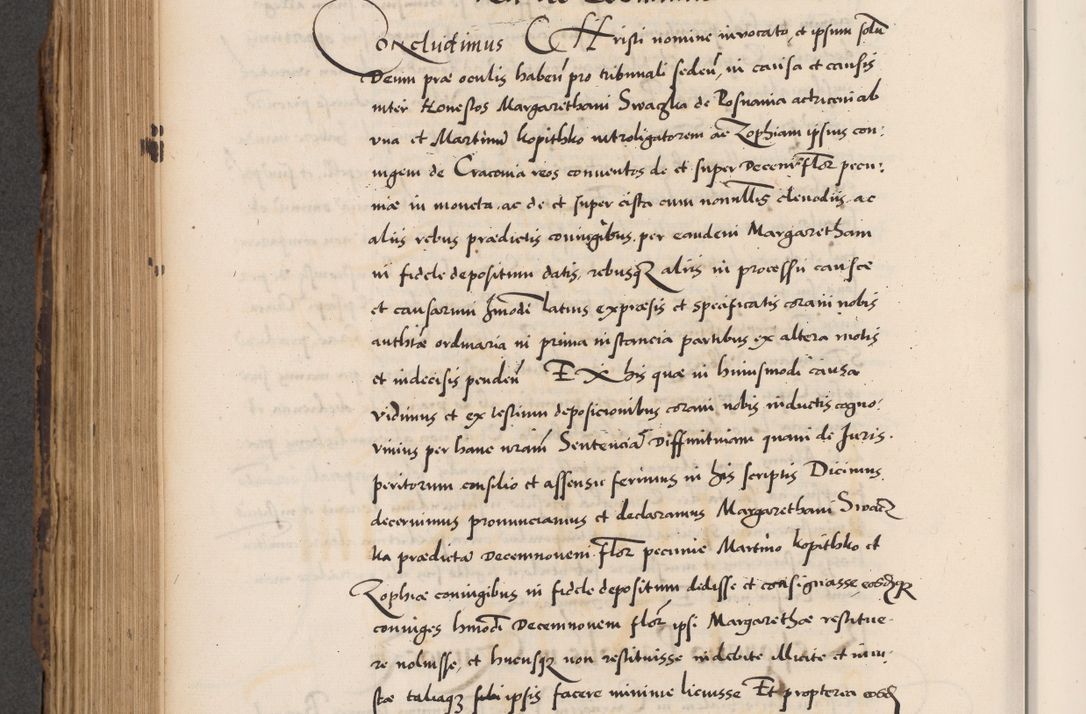 Concludimus CHristi nomine invocato, et ipsum solū
Deum præ oculis habeñ pro tribunali sedeñ, in causa et causis
inter Honestos Margaretham Swaczka de Posnania actricem ab
vna et Martinū kopithko introligatorem ac Zophiam ipsius con:
iugem de Cracouia reos conuentos de et super Decem flor pecu:
niæ in moneta, ac de et super cista cum nonnullis clenodiis, ac
aliis rebus prædictis coniugibus, per eandem Margaretham
in fidele depositum datis, rebusq aliis in processu causæ
et causarum hmodi latius expræsis et specificatis coram nobis
authtæ ordinaria in prima instancia partibus ex altera motis
et indecisis pendeñ EX his quæ in huiusmodi causa
vidimus et ex testium deposicionibus coram nobis inductis cogno:
vimus per hanc nram Sentenciā Diffinitiuam quam de Juris
peritorum consilio et assensu ferimus in his scriptis Dicimus
decernimus pronunciamus et declaramus Margaretham Swacz
ka prædictā Decemnouem flor pecuniæ Martino kopithko et
Zophiæ coniugibus in fidele depositum dedisse et consignasse, eosdqz
coniuges hmodi Decemnouem flor ipsi Margarethæ restitue
re noluisse, et hucusqz non restituisse indebite illicite et iniu
stæ taliaqz sibi ipsis facere minime licuisse Et propterea eosd